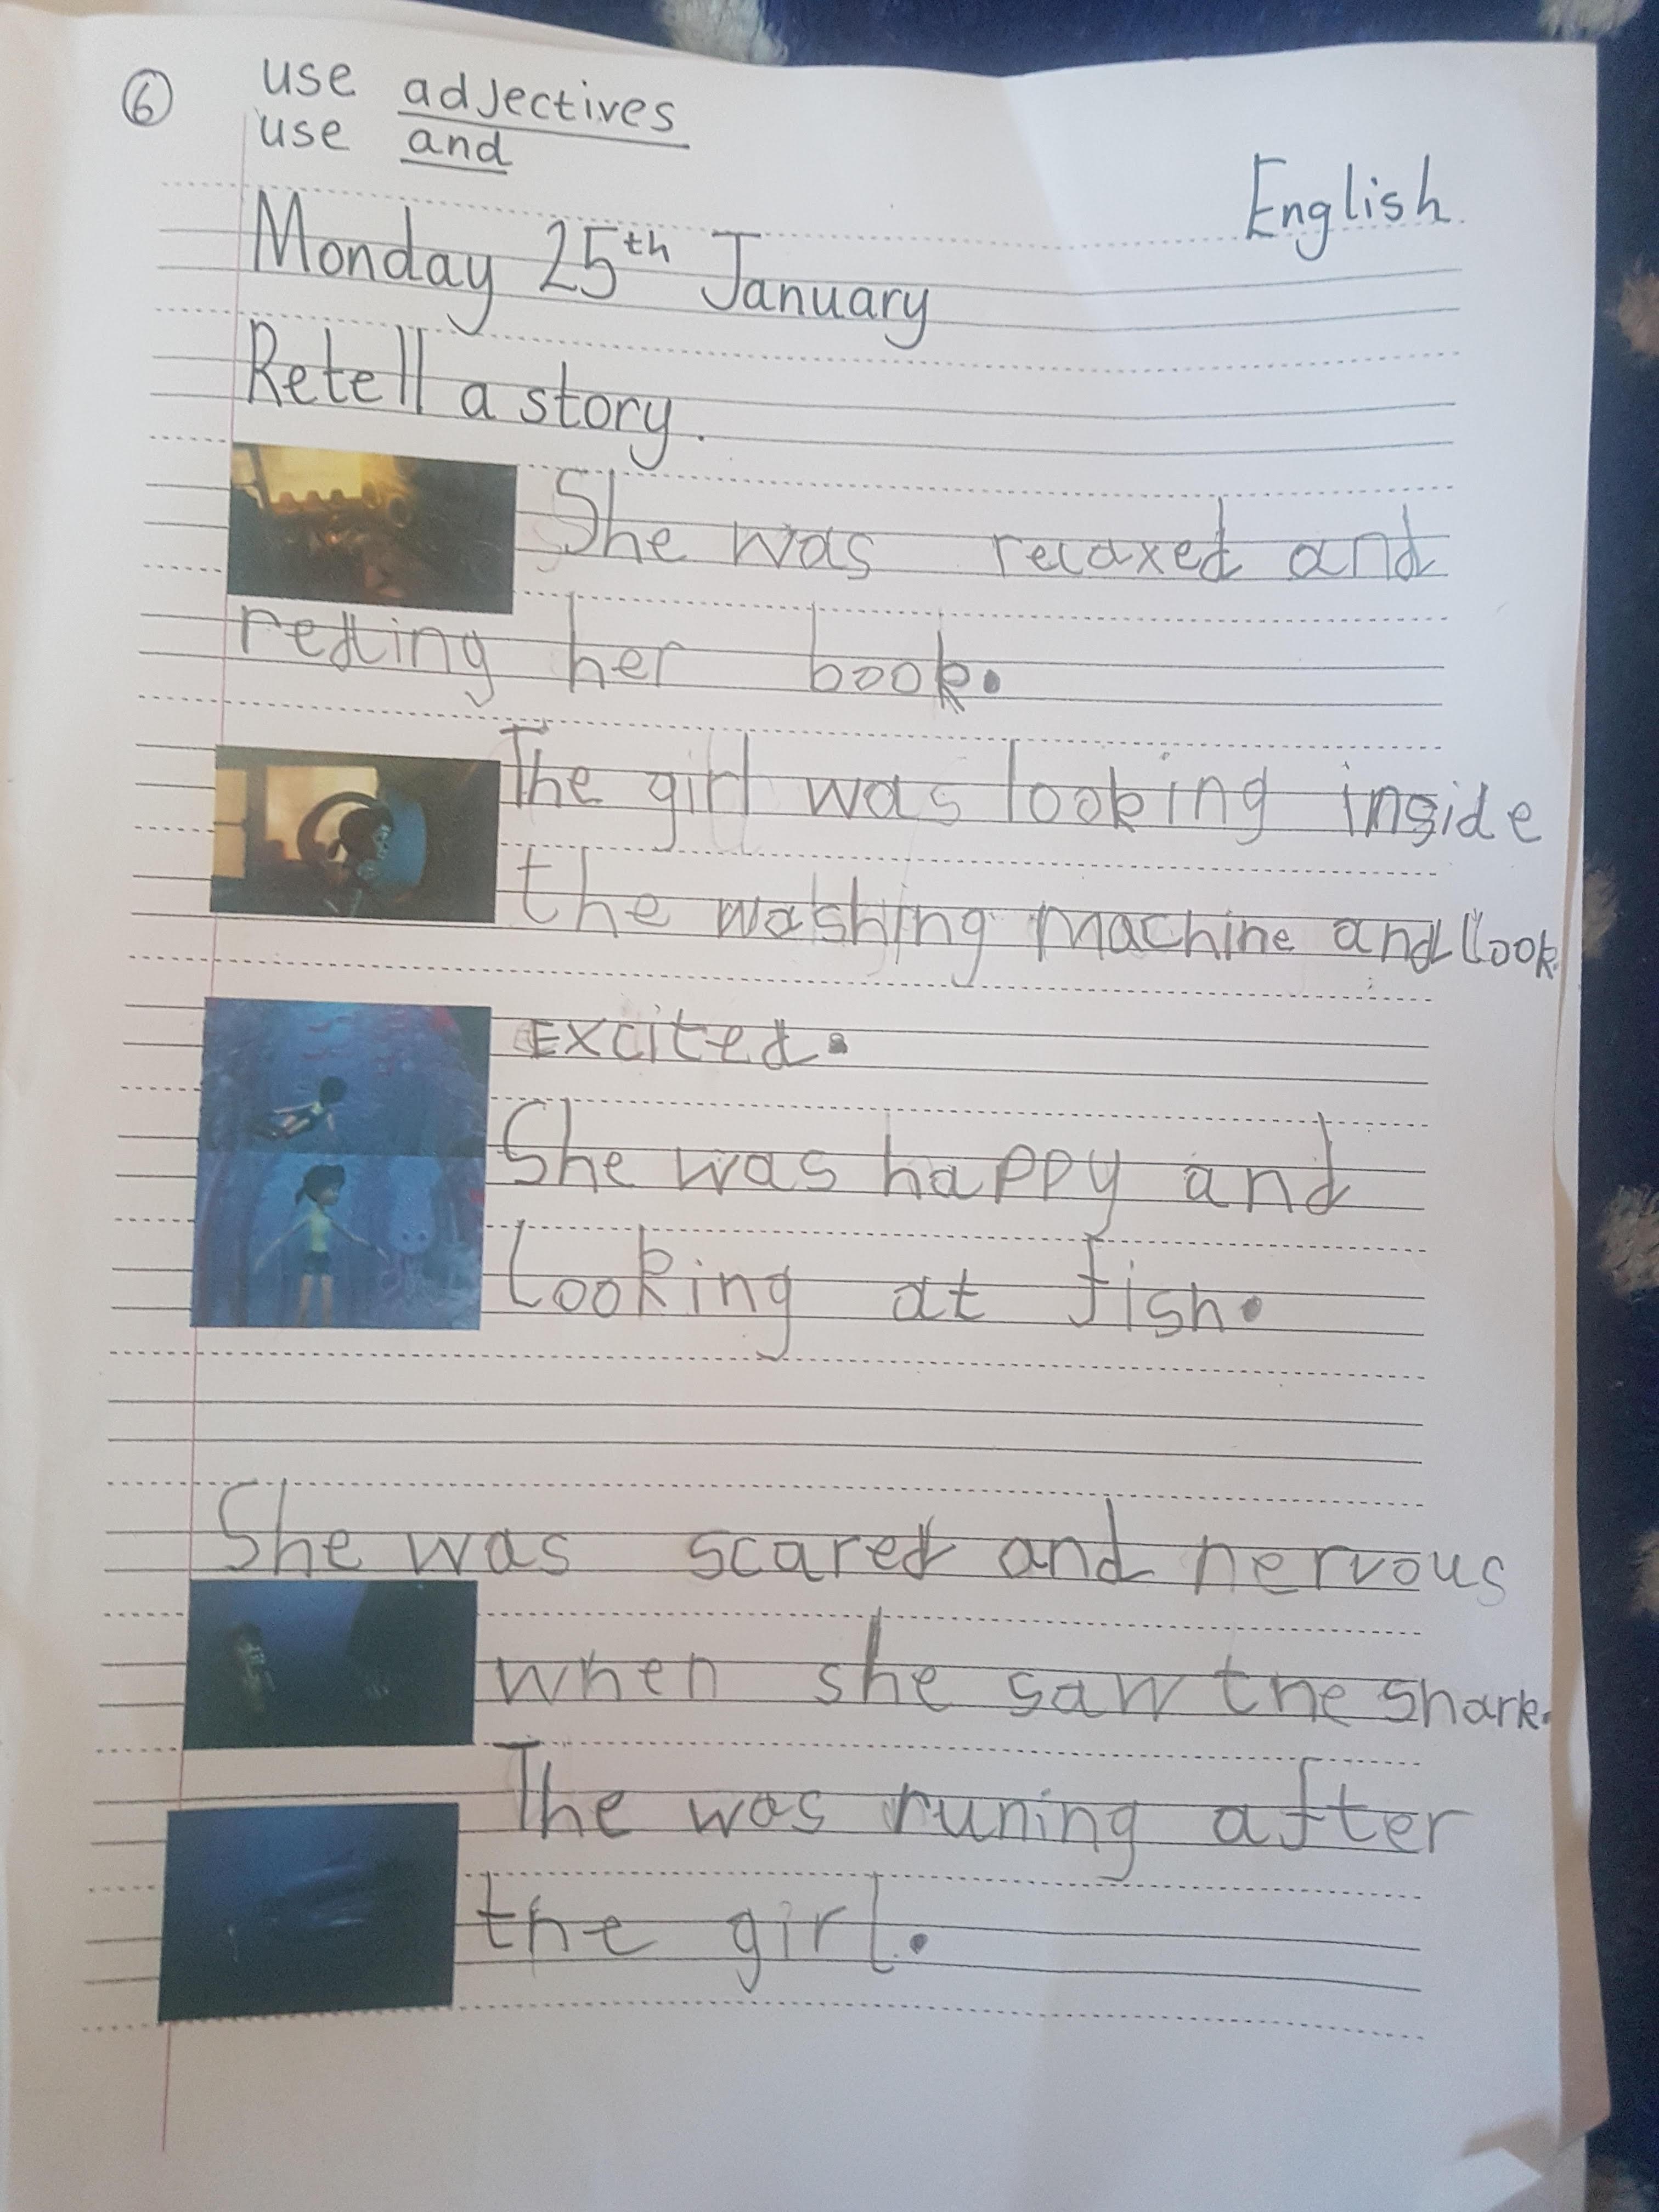 6 use adjectives
use and
English.
Monday 25th January
Retell a story.
She was relaxed and
reding her book.
The girl was looking inside
the washing machine and look
Excited.
She was happy and
looking at fish.
She was scared and nervous
when she saw the shark.
The was runing after
the girl.